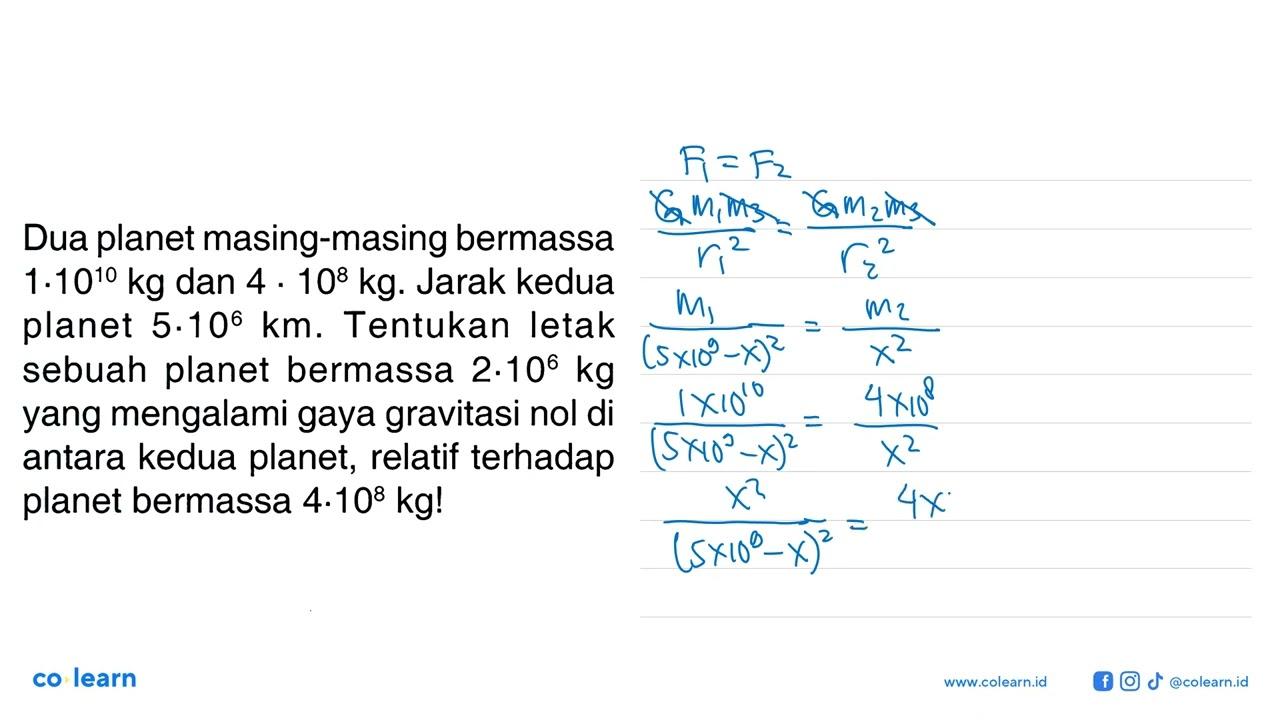 Dua planet masing-masing bermassa
1·10¹⁰ kg dan 4 · 10⁸ kg. Jarak kedua
planet 5·10⁶ km. Tentukan letak
sebuah planet bermassa 2·10⁶ kg
yang mengalami gaya gravitasi nol di
antara kedua planet, relatif terhadap
planet bermassa 4·10⁸ kg!
F₁ = F₂
G m₁ m₃ / r₁² = G m₂ m₃ / r₂²
m₁ / (5x10⁹ - x)² = m₂ / x²
1x10¹⁰ / (5x10⁹ - x)² = 4x10⁸ / x²
x² / (5x10⁹ - x)² = 4x
co learn
www.colearn.id
@colearn.id